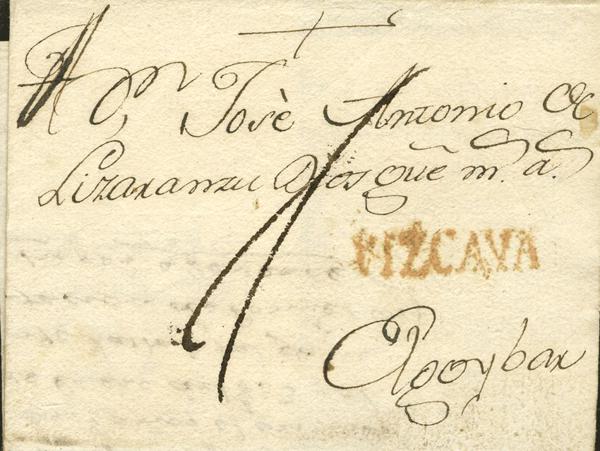 A Dn Josè Antonio de
Lizaranzu Dios gũe ms as
VIZCAYA
Elgoybar